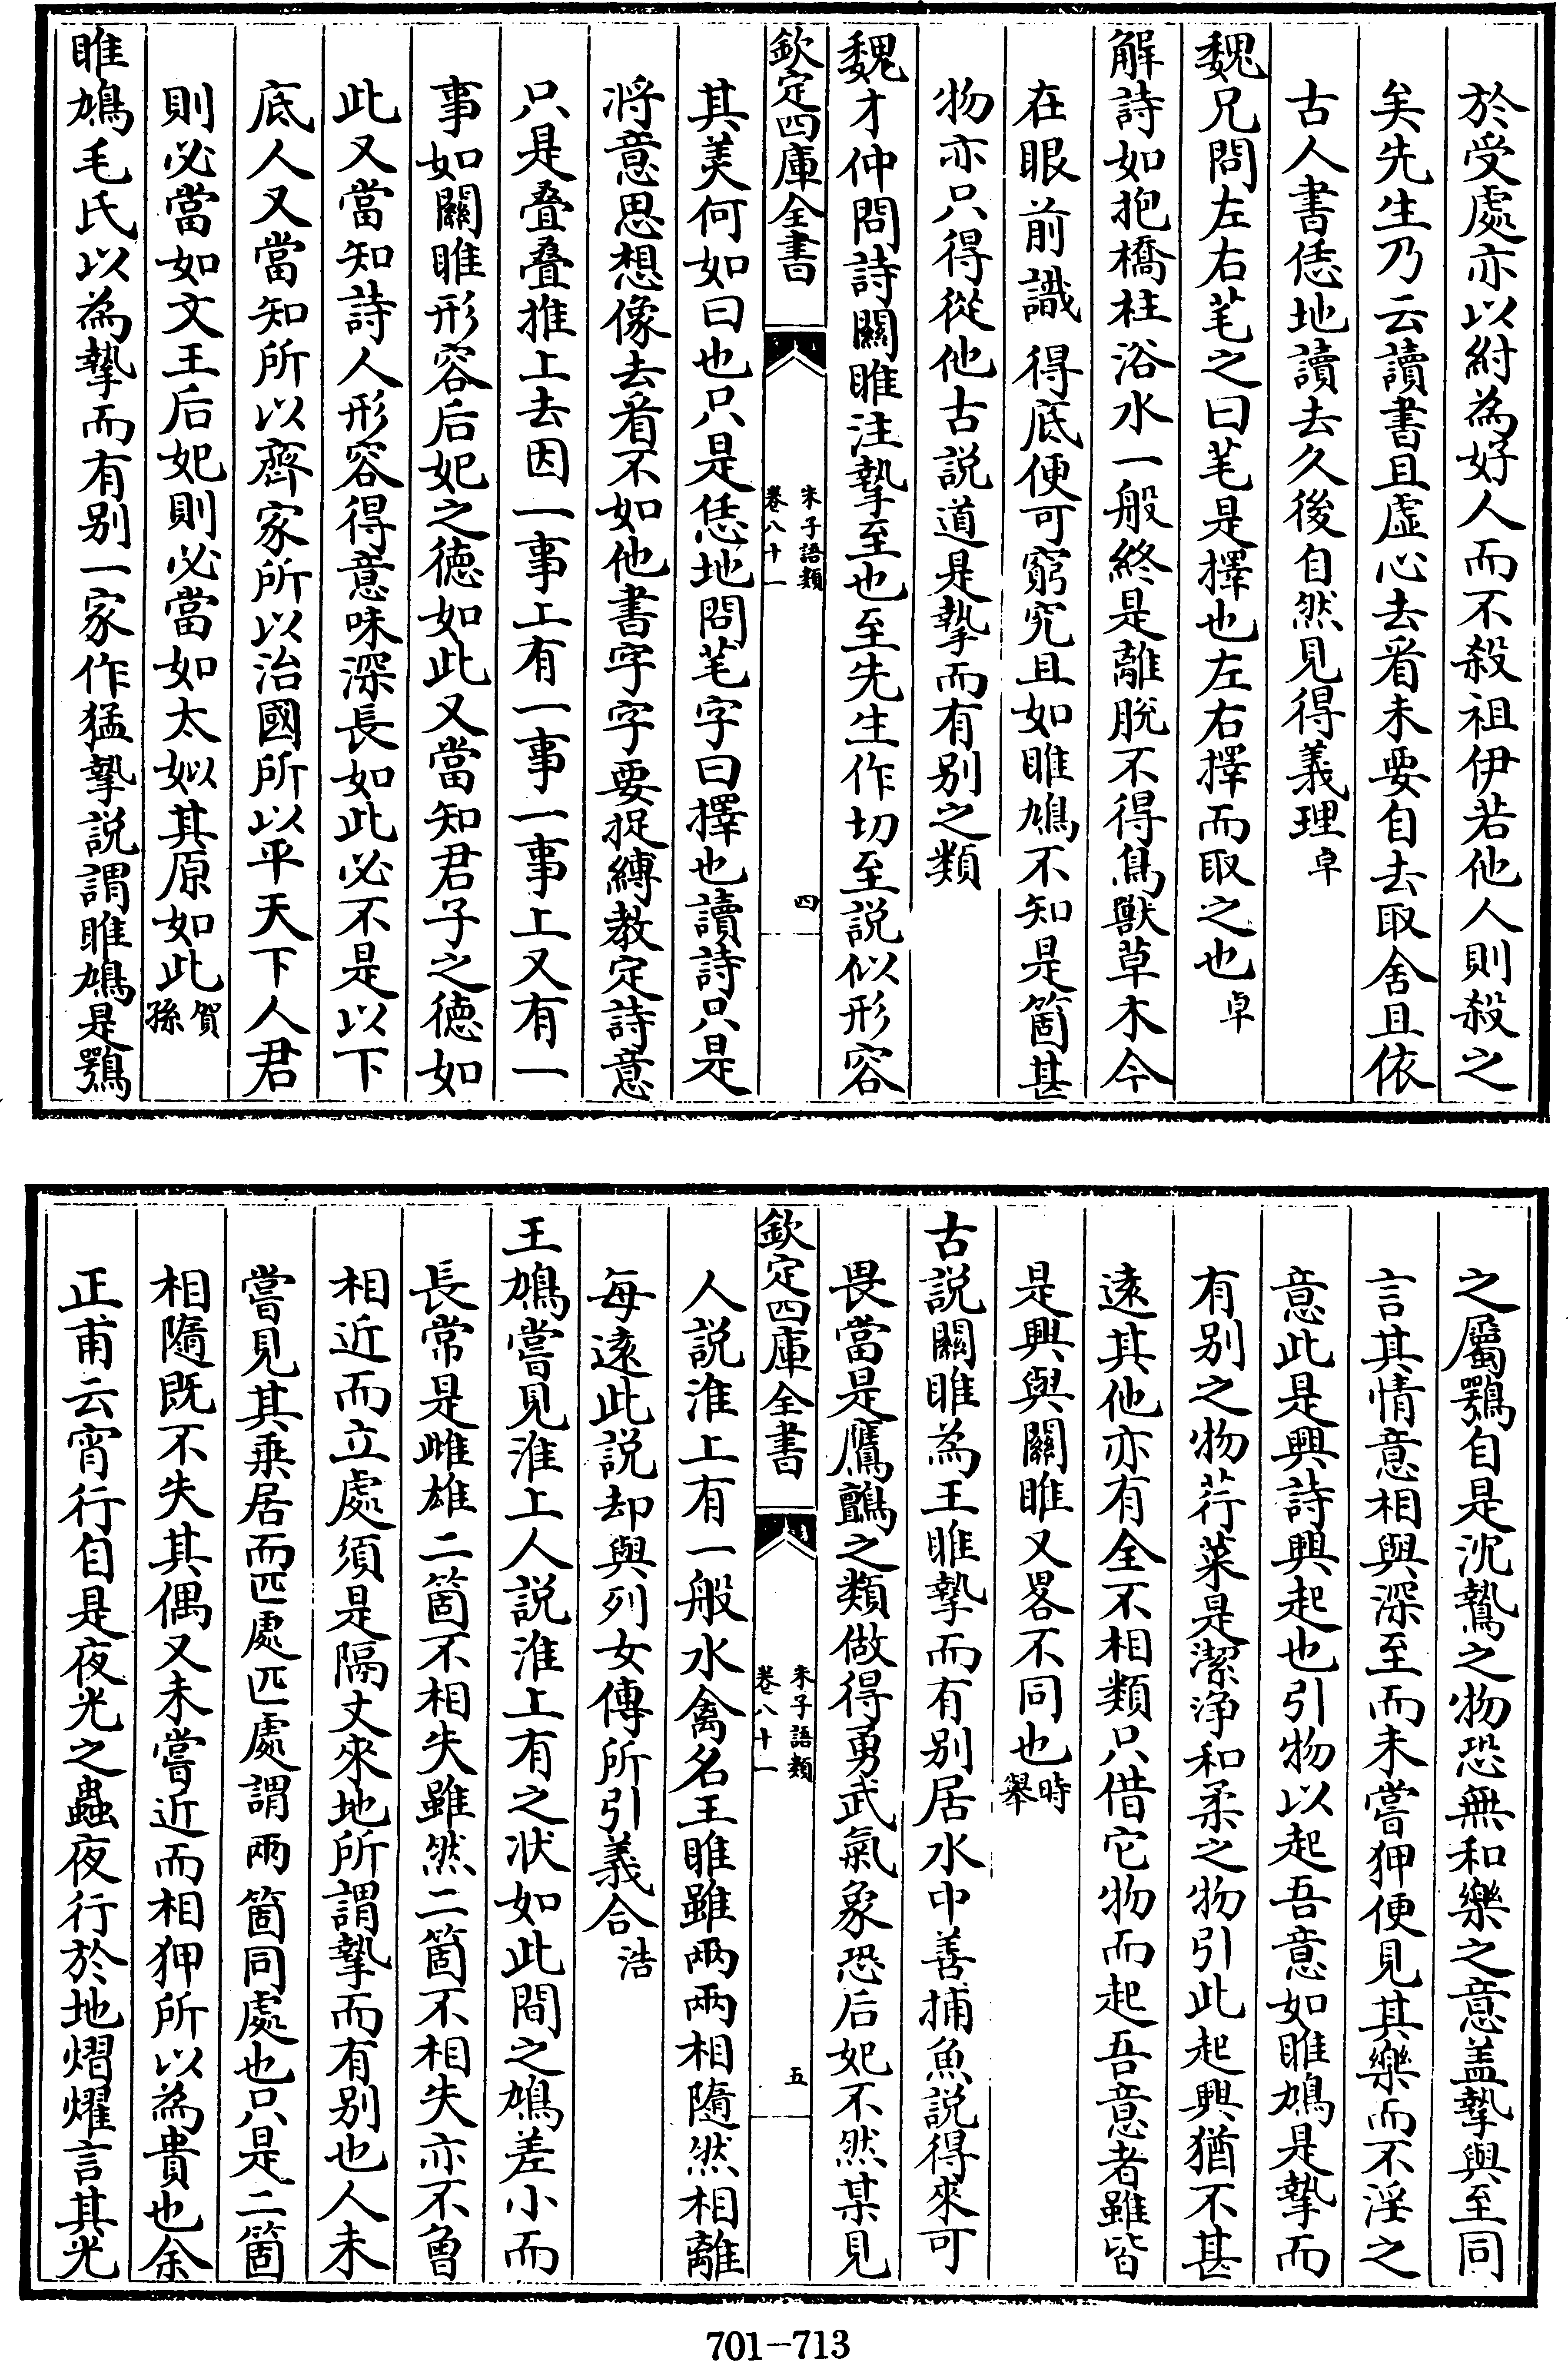 於受處亦以紂為好人而不殺祖伊若他人則殺之
矣先生乃云讀書且虚心去看未要自去取舍且依
古人書恁地讀去久後自然見得義理卓
魏兄問左右芼之曰芼是擇也左右擇而取之也卓
解詩如抱橋柱浴水一般終是離脫不得鳥獸草木今
在眼前識得底便可窮究且如雎鳩不知是箇甚
物亦只得從他古説道是摯而有别之類
魏才仲問詩關雎注摯至也至先生作切至説似形容
欽定四庫全書
朱子語類
卷八十一
四
其美何如曰也只是恁地問芼字曰擇也讀詩只是
將意思想像去看不如他書字字要捉縛教定詩意
只是叠叠推上去因一事上有一事一事上又有一
事如關雎形容后妃之徳如此又當知君子之徳如
此又當知詩人形容得意味深長如此必不是以下
底人又當知所以齊家所以治國所以平天下人君
則必當如文王后妃則必當如太姒其原如此賀孫
雎鳩毛氏以為摯而有别一家作猛摯説謂雎鳩是鶚
之屬鶚自是沈鷙之物恐無和樂之意盖摯與至同
言其情意相與深至而未嘗狎便見其樂而不淫之
意此是興詩興起也引物以起吾意如雎鳩是摯而
有别之物荇菜是潔浄和柔之物引此起興猶不甚
遠其他亦有全不相類只借它物而起吾意者雖皆
是興與關雎又畧不同也時舉
古説關雎為王雎摯而有别居水中善捕魚説得來可
畏當是鷹鸇之類做得勇武氣象恐后妃不然某見
欽定四庫全書
朱子語類
卷八十一
五
人説淮上有一般水禽名王雎雖兩兩相隨然相離
每遠此説却與列女傳所引義合浩
王鳩嘗見淮上人説淮上有之状如此間之鳩差小而
長常是雌雄二箇不相失雖然二箇不相失亦不曾
相近而立處須是隔丈來地所謂摯而有别也人未
嘗見其乗居而匹處匹處謂兩箇同處也只是二箇
相隨既不失其偶又未嘗近而相狎所以為貴也余
正甫云宵行自是夜光之蟲夜行於地熠燿言其光
701-713